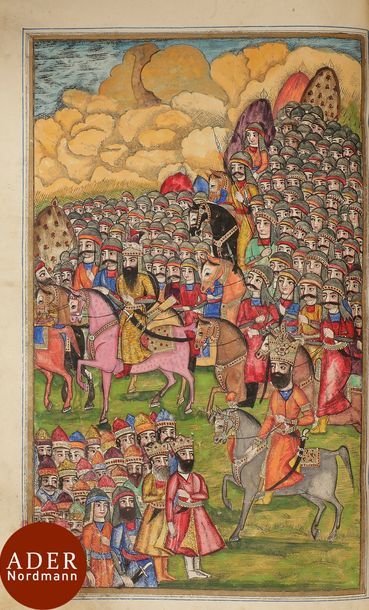 ADER
Nordmann